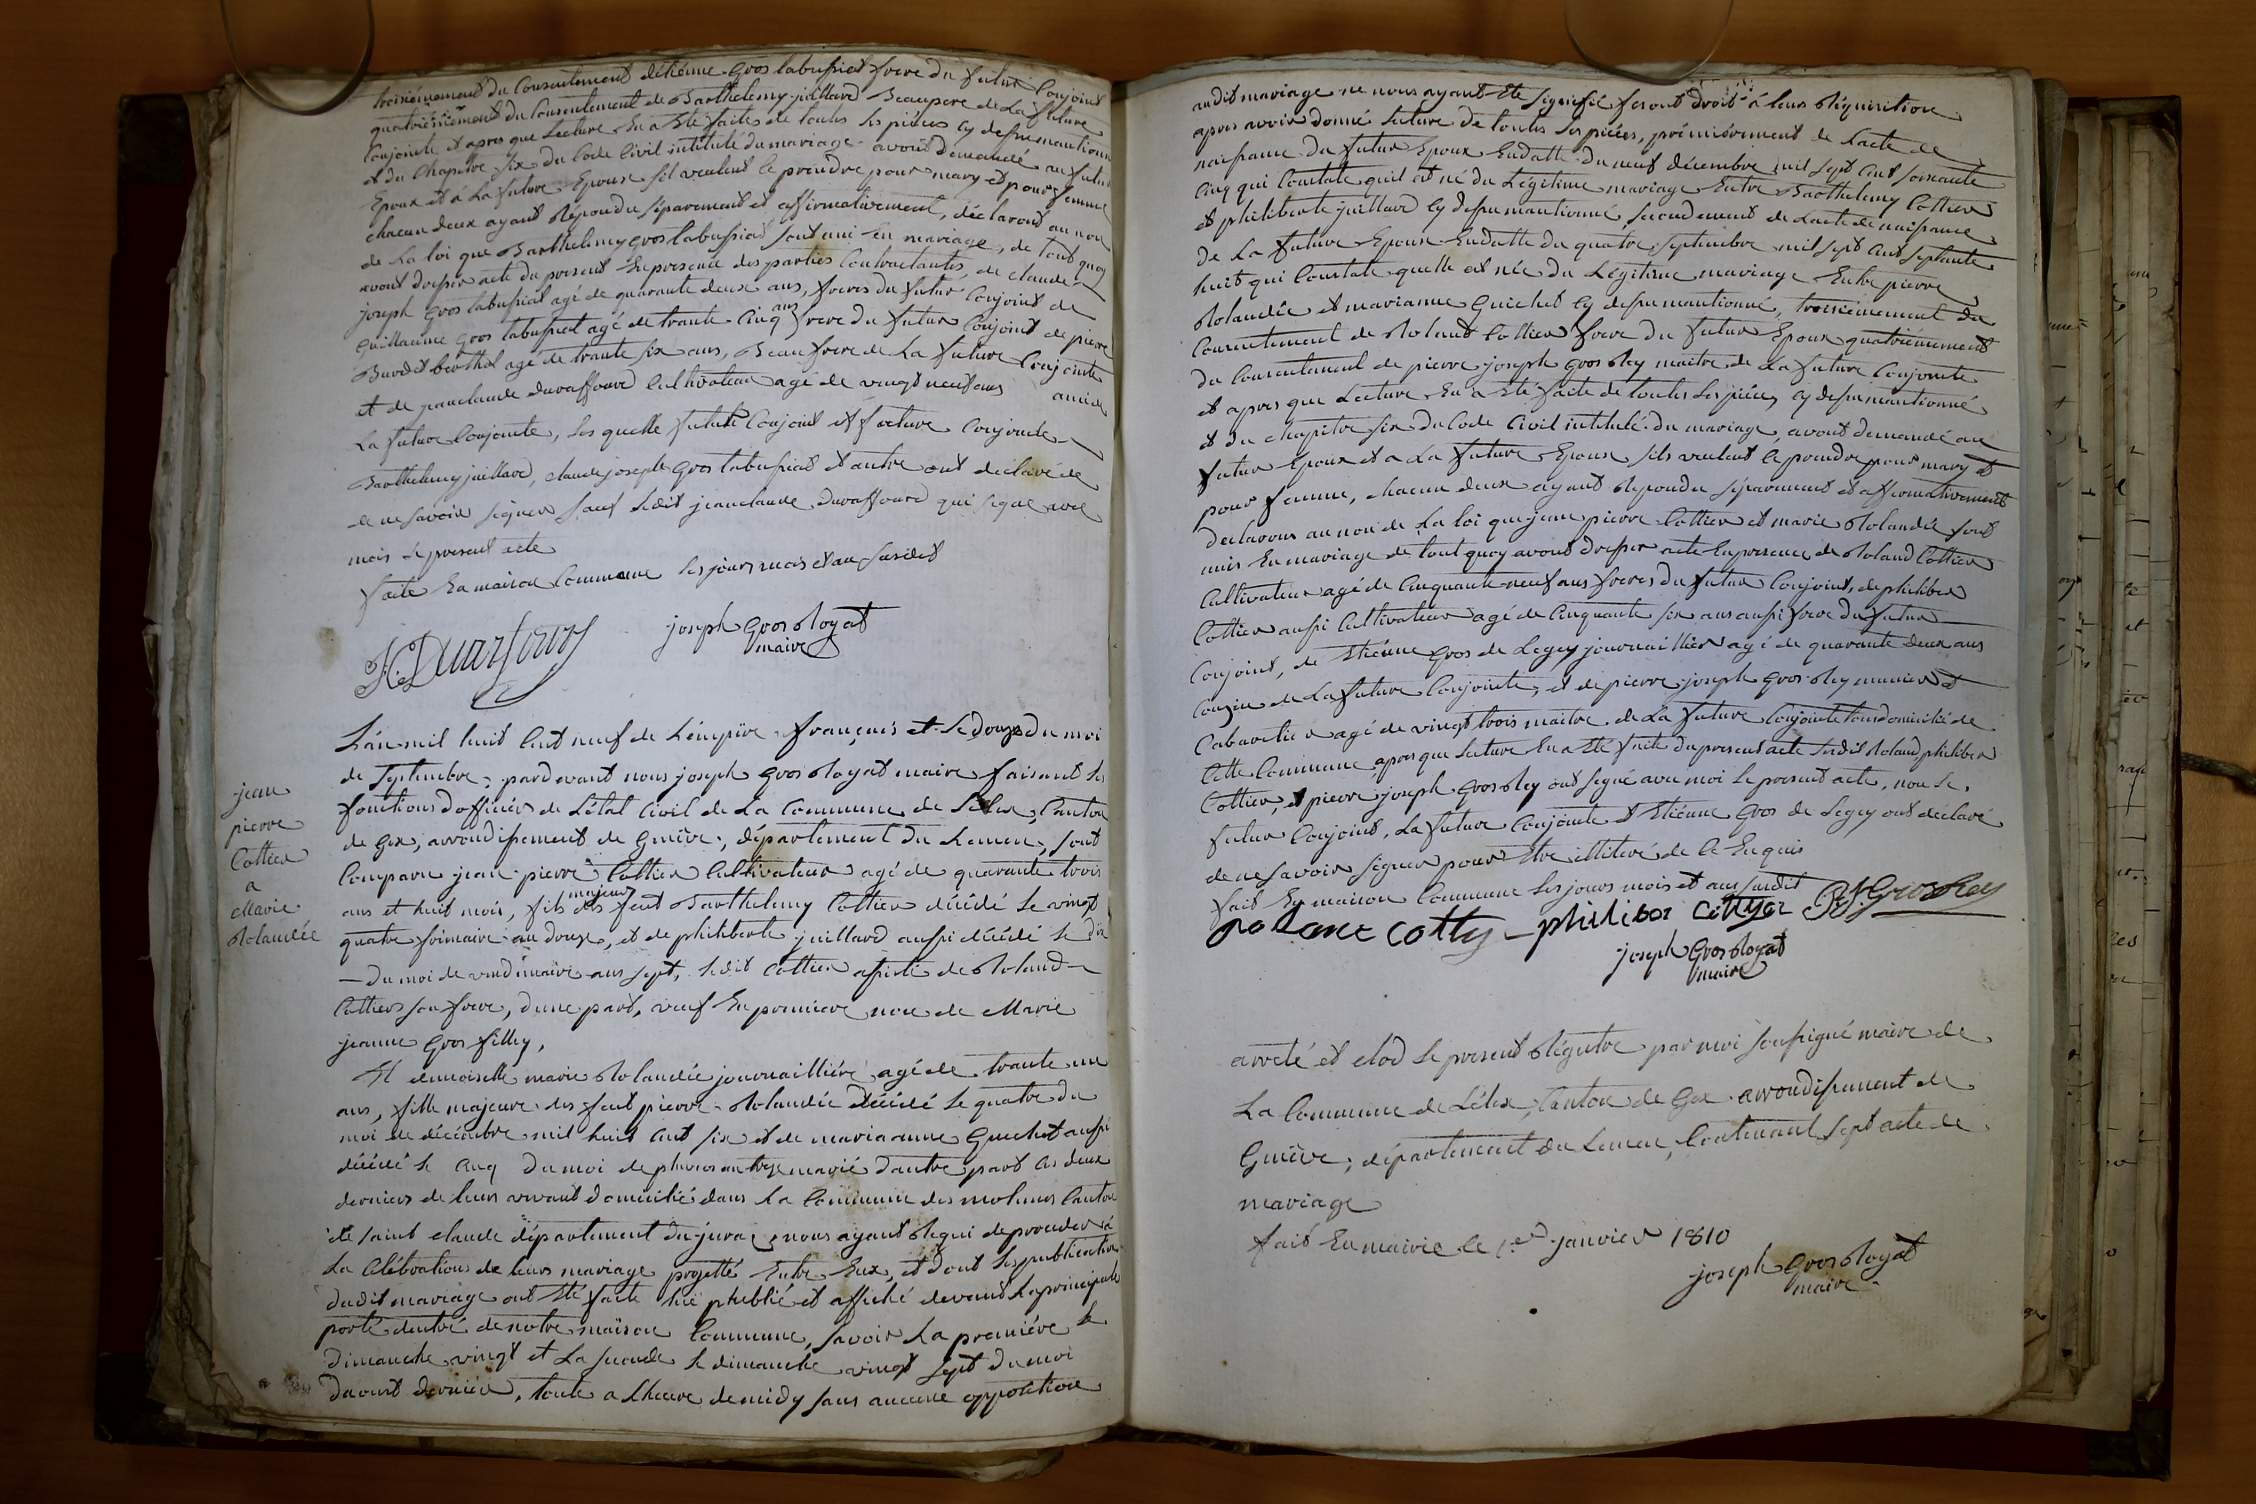 troisiémement du Consentement détiénne Gros labussiat frere du futur Conjoint
quatriémement du Consentement de Barthelemy juillard Beaupere de La future
Conjointe et apres que Lecture En a Eté faite de toutes les piéces cy dessu mantionné
et du Chapitre six du Code Civil intitulé du mariage avont demandé au futur
Epoux et a La future Epouse sil veulent ce prendre pour mary et pour femme
chacun deux ayant Répondu séparement et affirmativement, déclaront au nom
de La loi que Barthelemy Gros labussiat sont uni En mariage, de tout quoy
avont dressé acte du present En presence des parties Contractantes, de claude
joseph Gros labussiat agé de quarante deux ans, freres du futur Conjoint de
Guillaume Gros labussiat agé de trante Cinq ans frere du futur Conjoint de pierre
Burdet berthod agé de trante six ans, Beau frere de La future Conjointe
et de jeanclaude duraffourd Cultivateur agé de vingt neuf ans amie de
La future Conjointe, les quelle futur Conjoint et future Conjointe
Barthelemy juillard, claude joseph Gros labussiat et autre ont déclaré de
de ne savoir signer sauf ledit jeanclaude duraffourd qui signe avec
mois le present acte
faite En maison Commune les jours mois et an susdit
joseph Gros Royat
maire
L'an mil huit Cent neuf de L'émpire français et le douze du moi
de septembre, pardevant nous joseph Gros Royat maire faisant les
fonctions dofficiér de L'état Civil de La Commune de Lélex, Canton
de Gex, arrondissement de Genève, département du Leman, sont
jean
pierre
Cottier
a
Marie
Rolandée
Comparu jean pierre Cottier Cultivateur agé de quarante trois
ans et huit mois, fils majeur des feut Barthelemy Cottier décédé le vingt
quatre frimaire an douze, et de philiberte juillard aussi décédé le dix
du moi de vendémiaire ans sept, ledit Cottier assisté de Roland
Cottier son frere, dune part, veuf En premiere noce de Marie
jeanne Gros fillex,
Et demoiselle marie Rolandée journailliére agé de trante un
ans, fille majeure des feut pierre Rolandée décédé le quatre du
moi de décémbre mil huit Cent six et de marianne Guichet aussi
décédé le Cinq du moi de pluvios an treze marié dautre part les deux
derniers de leurs vivant domicilié dans La Commune des molunes Canton
de saint claude département du jura, nous ayant Requi de proceder à
La Célébrations de leurs mariage projetté Entre Eux, et dont les publications
dudit mariage ont Eté faite lue publié et affiché devant La principale
porte dentré de notre maison Commune, savoir La premiére le
dimanche vingt et La seconde le dimanche vingt sept du moi
daoust derniér, toute a L'heure de midy sans aucune opposition
audit mariage ne nous ayant Eté signifié fesant droit à leurs Réquisition
apres avoir donné Lecture de toutes les piéces, premiérement de Lacte de
naissance du futur Epoux Endatte du neuf décembre mil sept Cent soixante
Cinq qui Constate quil est né du Légitime mariage Entre Barthelemy Cottier
et philiberte juillard cy dessu mantionné secondement de Lacte de naissance
de La future Epouse Endatte du quatre septembre mil sept Cent septante
huit qui Constate quelle est née du Légitime mariage Entre pierre
Rolandée et marianne Guichet cy dessu mantionné, troisiémement du
Consentement de Roland Cottier frere du futur Epoux quatriémement
du Consentement de pierre joseph Gros Rey maitre de La future Conjointe
et apres que Lecture En a Eté faite de toutes les piéces cy dessu mantionné
et du chapitre six du Code Civil intitulé du mariage, avont demandé au
futur Epoux et a La future Epouse sils veulent ce prendre pour mary et
pour femme, chacun deux ayant Repondu séparement et affirmativement
declarons au nom de La loi que jean pierre Cottier et marie Rolandée sont
unis En mariage de tout quoy avont dresser acte En presence de Roland Cottier
Cultivateur agé de Cinquante neuf ans freres du futur Conjoint, de philiber
Cottier aussi Cultivateur agé de Cinquante six ans aussi frere du futur
Conjoint, de Etiénne Gros de Legey journaillier agé de quarante deux ans
Couzin de La future Conjointe, et de pierre joseph Gros Rey munier et
Cabaretier agé de vingt trois maitre de La future Conjointe tous domicilié de
Cette Commune apres que Lecture En a Eté faite du present acte ledit Roland, philiber
Cottier, et pierre joseph Gros Rey ont signé avec moi le present acte, non le
futur Conjoint, La future Conjointe et Etiénne Gros de Legey ont déclaré
de ne savoir signer pour Etre illiteré de Ce Enquis
fait En maison Commune les jours mois et ans susdit
rolane cotty philiber cottyer PJ Gros Rey
joseph Gros Royat
maire
arreté et clod le present Régistre par moi soussigné maire de
La Commune de Lélex, Canton de Gex arrondissement de
Genève, département du Leman, Contenant sept acte de
mariage
fait En mairie le 1er janvier 1810
joseph Gros Royat
maire